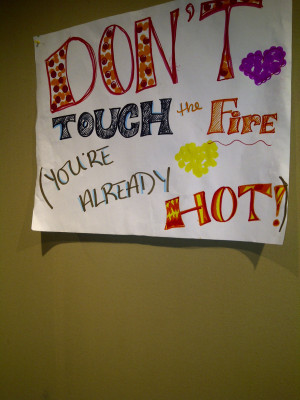 DON'T
TOUCH the Fire
(YOU'RE
ALREADY
HOT!)